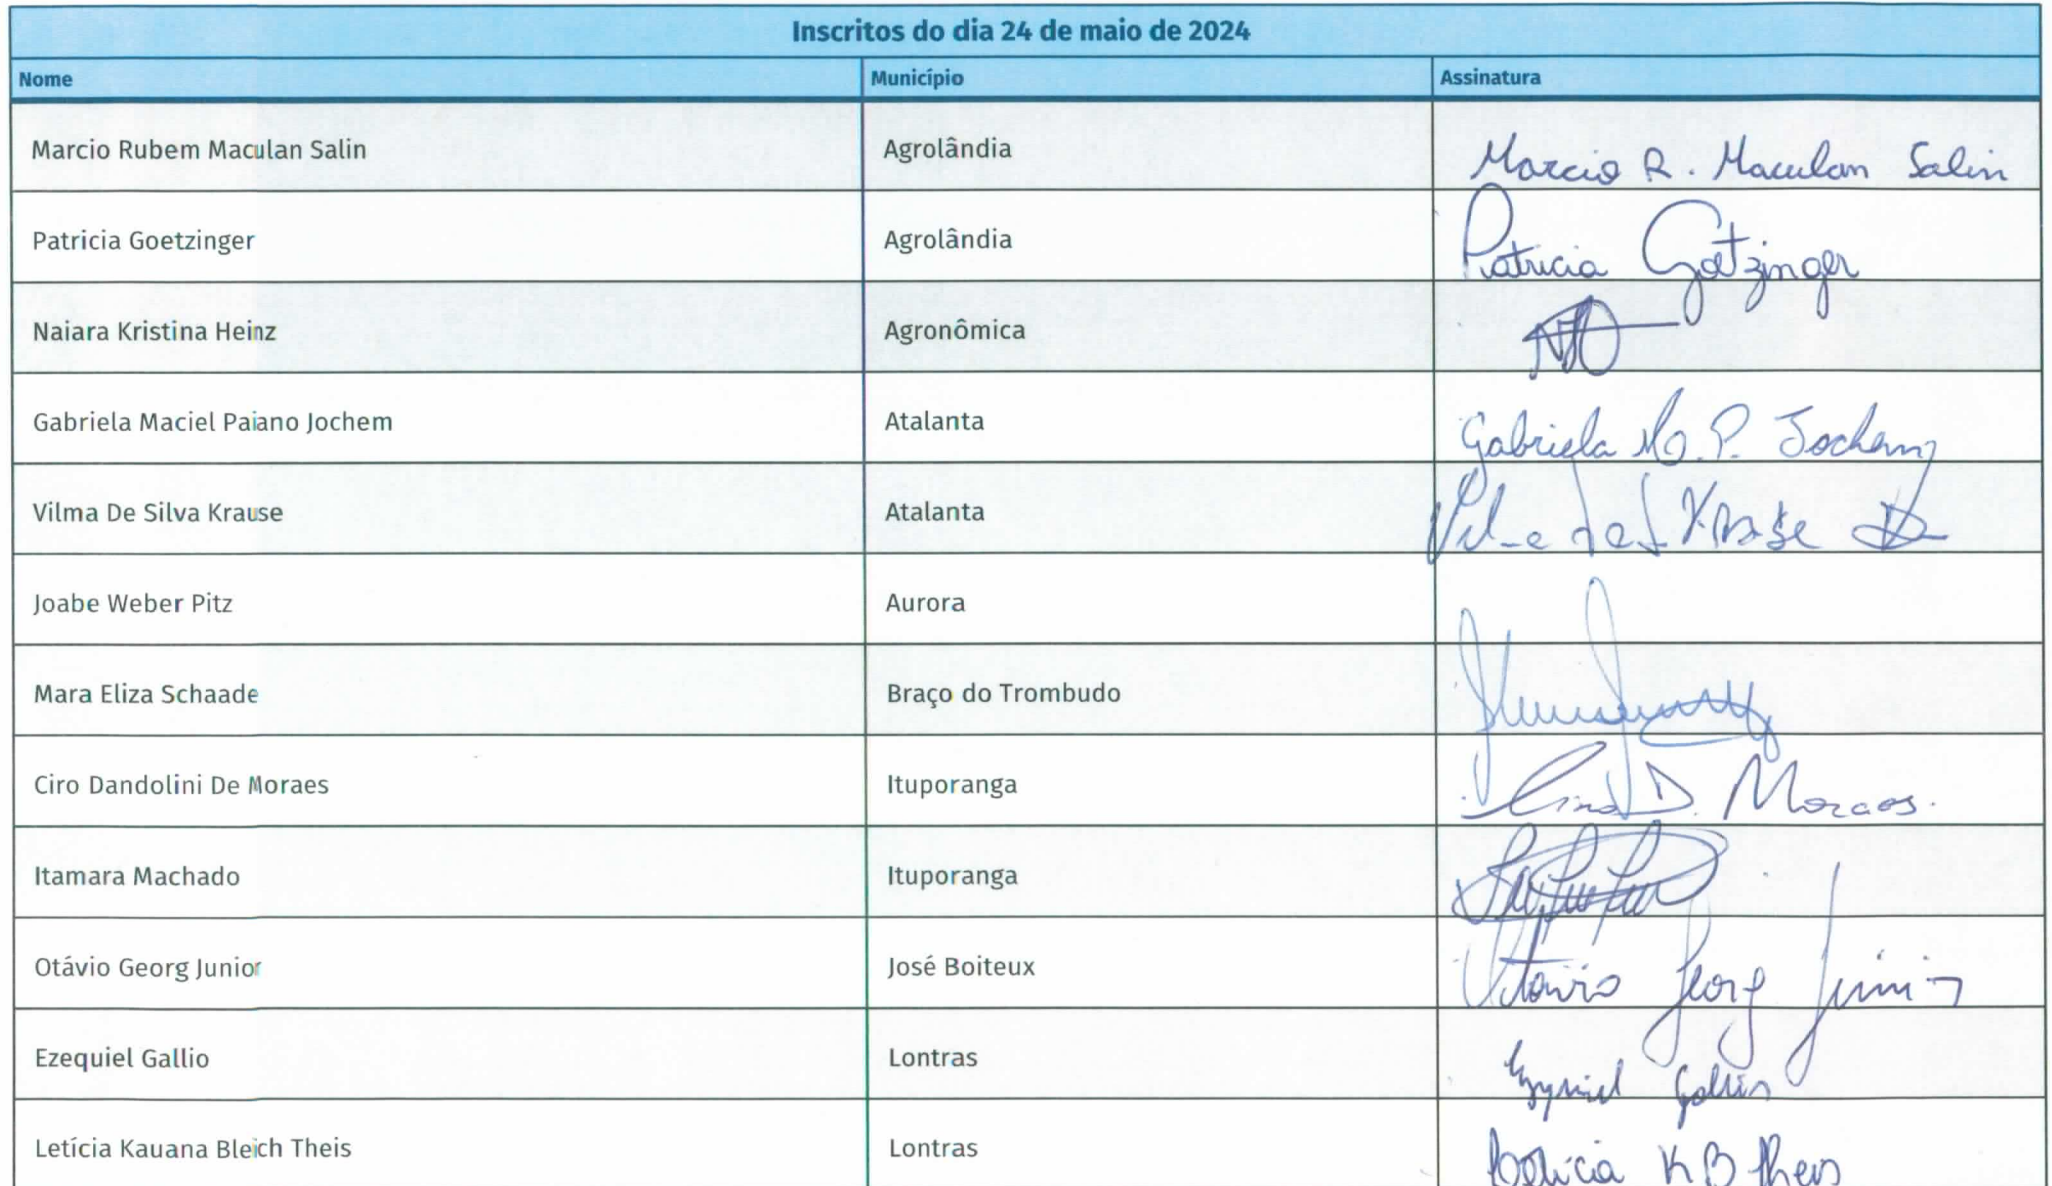 Inscritos do dia 24 de maio de 2024
Nome Município Assinatura
Marcio Rubem Maculan Salin Agrolândia Marcio R. Maculan Salin
Patricia Goetzinger Agrolândia Patricia Goetzinger
Naiara Kristina Heinz Agronômica
Gabriela Maciel Paiano Jochem Atalanta Gabriela M. P. Jochem
Vilma De Silva Krause Atalanta
Joabe Weber Pitz Aurora
Mara Eliza Schaade Braço do Trombudo
Ciro Dandolini De Moraes Ituporanga Ciro D. Moraes
Itamara Machado Ituporanga
Otávio Georg Junior José Boiteux Otávio Georg Junior
Ezequiel Gallio Lontras Ezequiel Gallio
Letícia Kauana Bleich Theis Lontras Letícia K B Theis